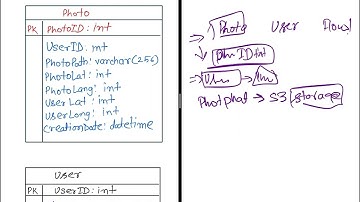 Photo
PK PhotoID: int
UserID: int
PhotoPath: varchar(256)
PhotoLat: int
PhotoLang: int
UserLat: int
UserLong: int
CreationDate: datetime
User
PK UserID: int
Photo User
PhotoID int
User
Photphat → S3 storage